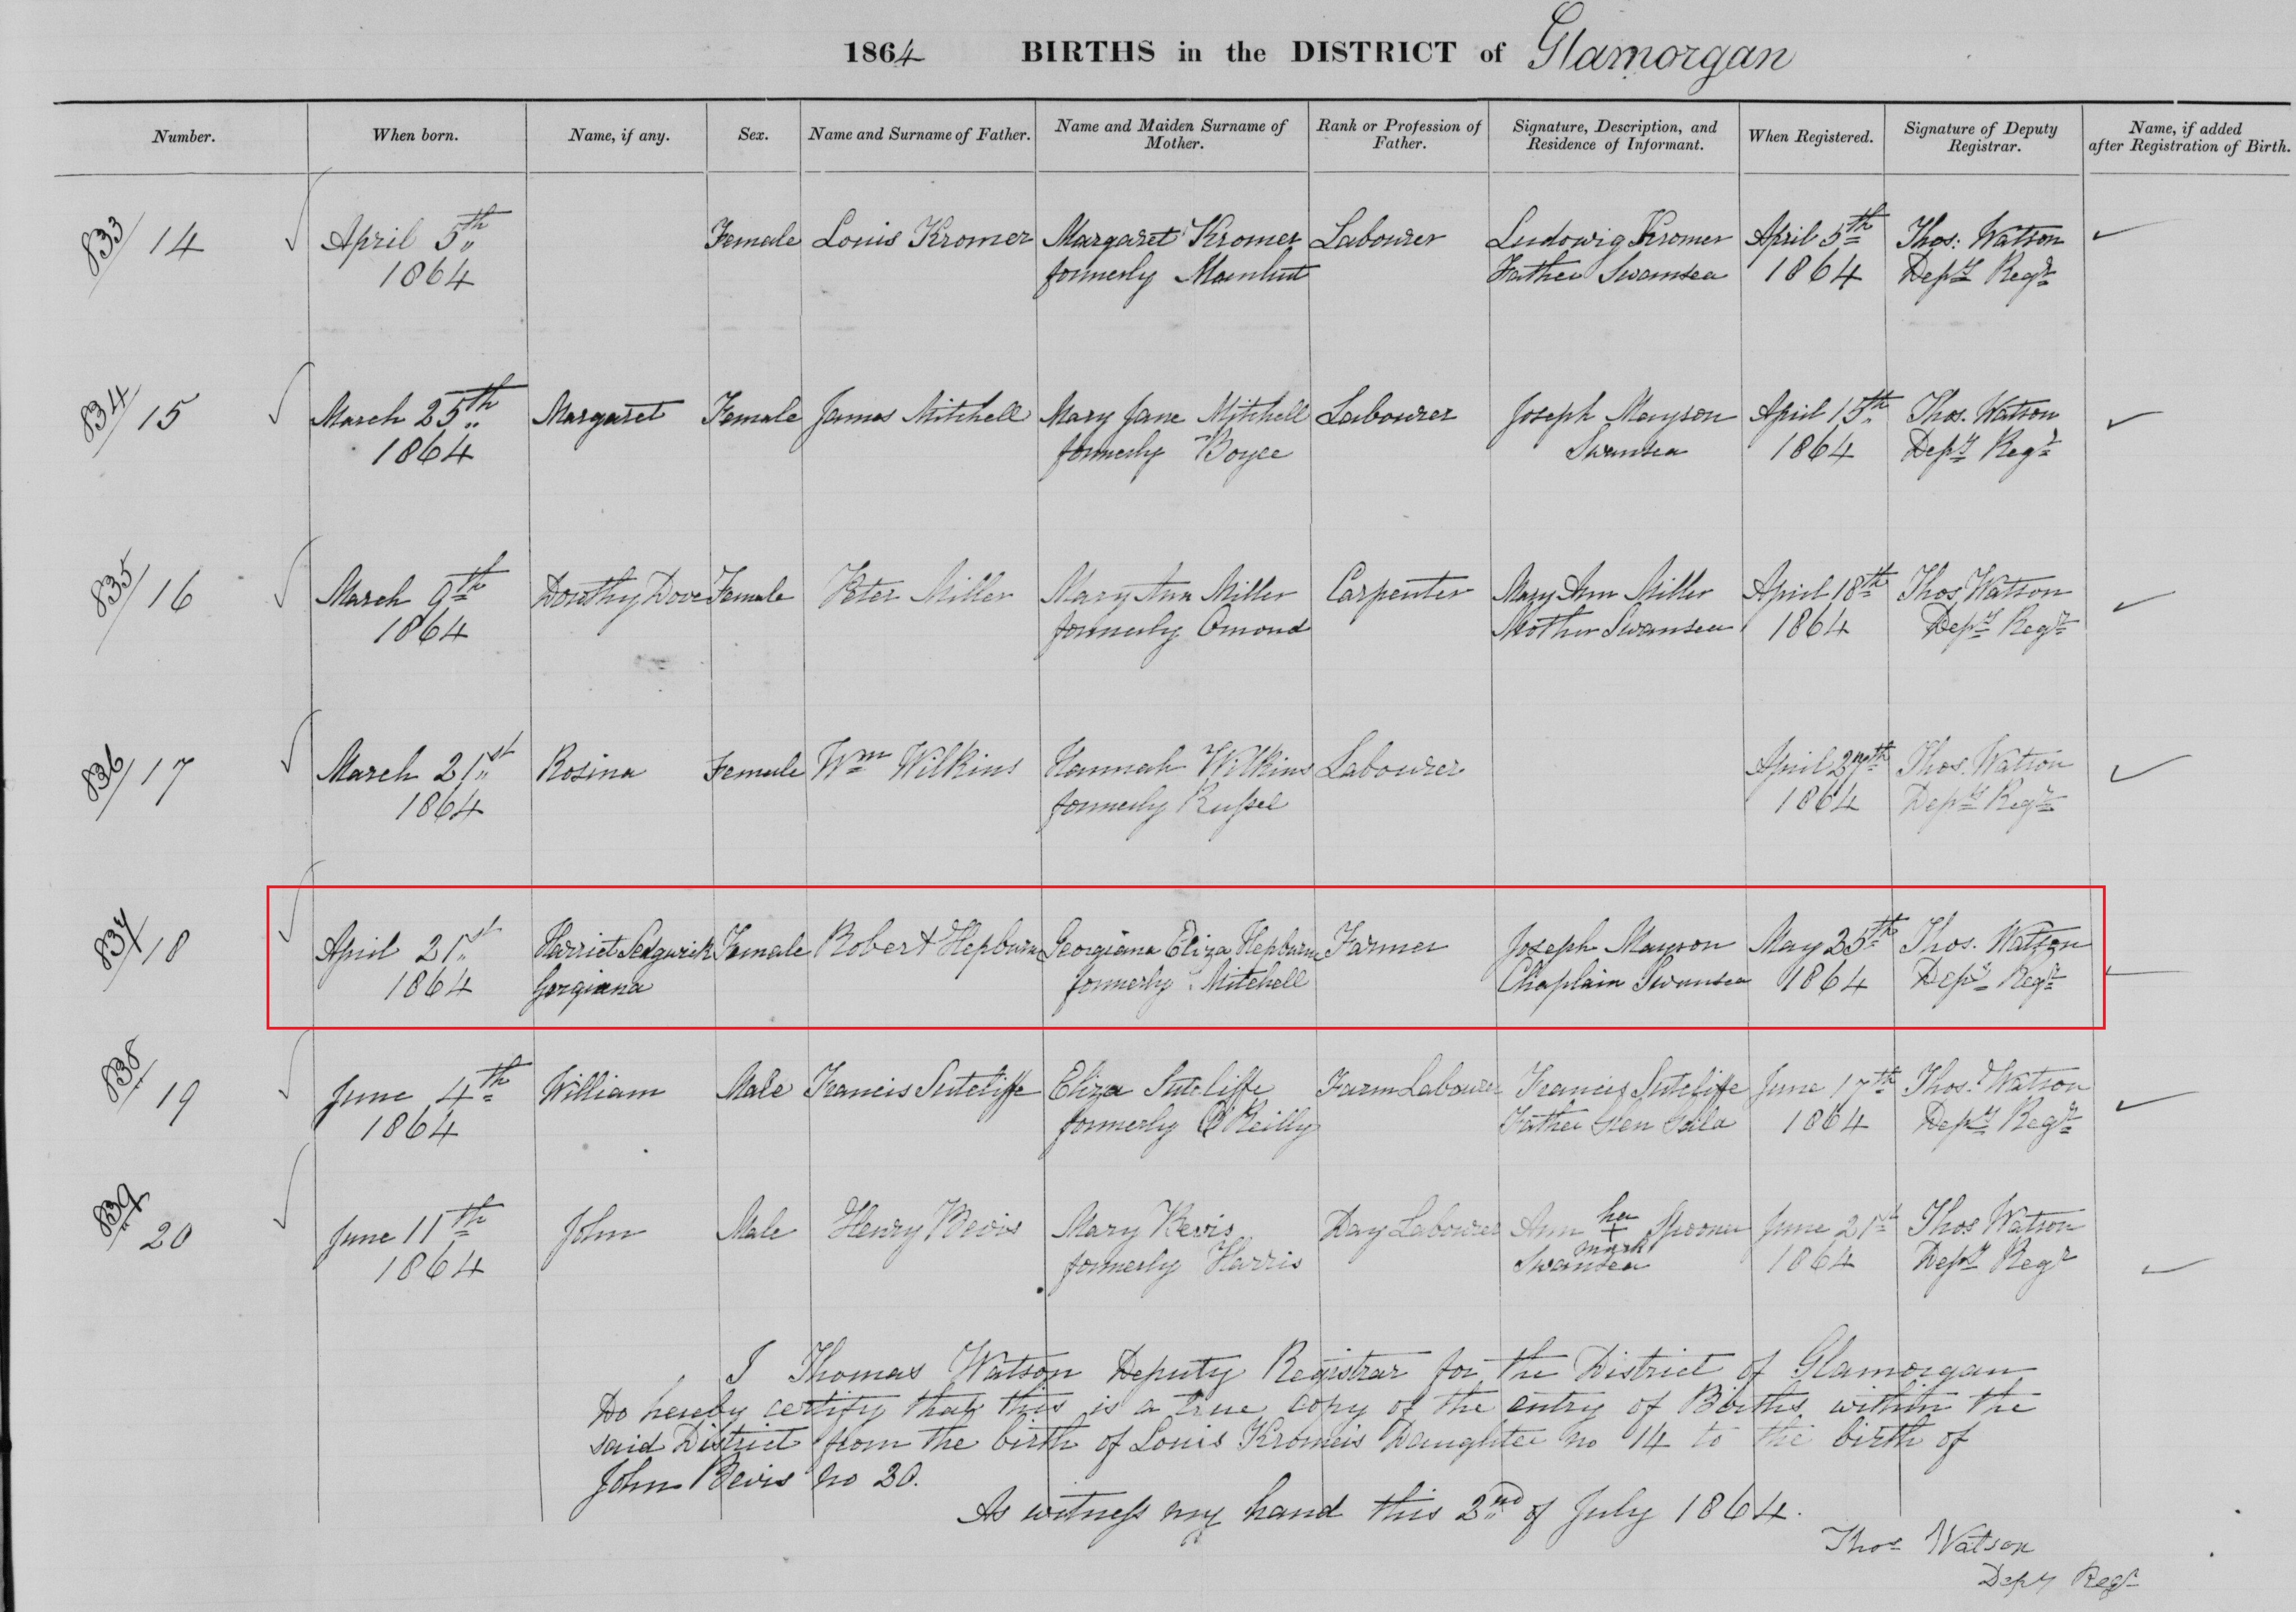 1864 BIRTHS in the DISTRICT of Glamorgan
Number. When born. Name, if any. Sex. Name and Surname of Father. Name and Maiden Surname of Mother. Rank or Profession of Father. Signature, Description, and Residence of Informant. When Registered. Signature of Deputy Registrar. Name, if added after Registration of Birth.
833/14 April 5th Female Louis Kromer Margaret Kromer Labourer Ludowig Kromer April 5th Thos: Watson
1864 formerly Father Swansea 1864 Depy Regr
834/15 March 25th Margaret Female James Mitchell Mary Jane Mitchell Labourer Joseph Mayson April 15th Thos. Watson
1864 formerly Boyce Swansea 1864 Depy Regr
835/16 March 9th Dorothy Dove Female Peter Miller Mary Ann Miller Carpenter Mary Ann Miller April 18th Thos Watson
1864 formerly Omond Mother Swansea 1864 Depy Regr
836/17 March 21st Rosina Female Wm Wilkins Hannah Wilkins Labourer April 27th Thos. Watson
1864 formerly Russel 1864 Depy Regr
837/18 April 21st Harriet Sedgwick Female Robert Hepburn Georgiana Eliza Hepburn Farmer Joseph Mayson May 25th Thos. Watson
1864 Gorgiana formerly Mitchell Chaplain Swansea 1864 Depy Regr
838/19 June 4th William Male Francis Sutcliffe Eliza Sutcliffe Farm Labourer Francis Sutcliffe June 17th Thos. Watson
1864 formerly O'Reilly Father Glen Gala 1864 Depy Regr
839/20 June 11th John Male Henry Bevis Mary Bevis Day Labourer Ann her + mark Spooner June 21st Thos Watson
1864 formerly Harris Swansea 1864 Depy Regr
I Thomas Watson Deputy Registrar for the District of Glamorgan
Do hereby certify that this is a true copy of the entry of Births within the
said District from the birth of Louis Kromers Daughter no 14 to the birth of
John Bevis no 20.
As witness my hand this 2nd of July 1864.
Thos Watson
Depy Regr